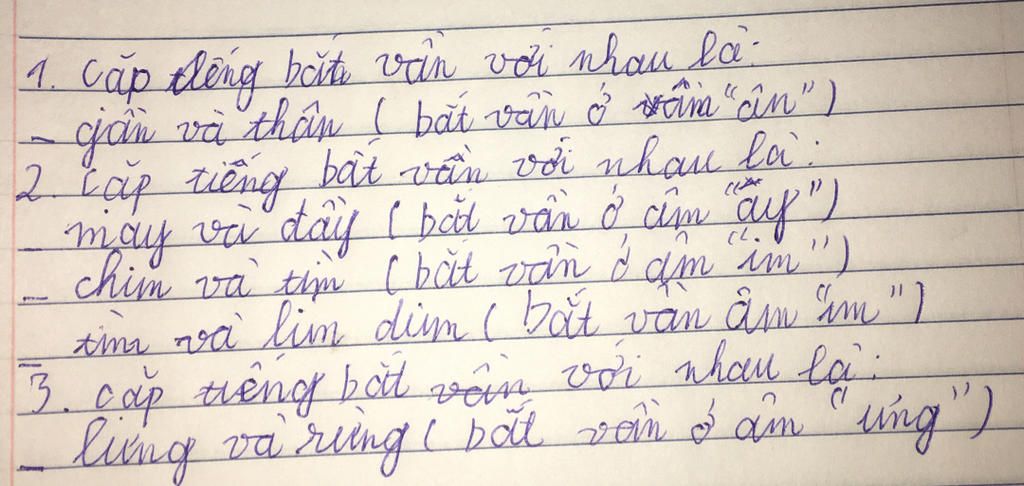 1. Cặp tiếng bắt vần với nhau là:
- gần và thân ( bắt vần ở vần "ân")
2. Cặp tiếng bắt vần với nhau là:
- mây và đầy ( bắt vần ở âm "ây")
- chim và tìm ( bắt vần ở âm "im")
- tìm và lim dim ( bắt vần âm "im")
3. Cặp tiếng bắt vần với nhau là:
- lưng và rừng ( bắt vần ở âm "ưng")